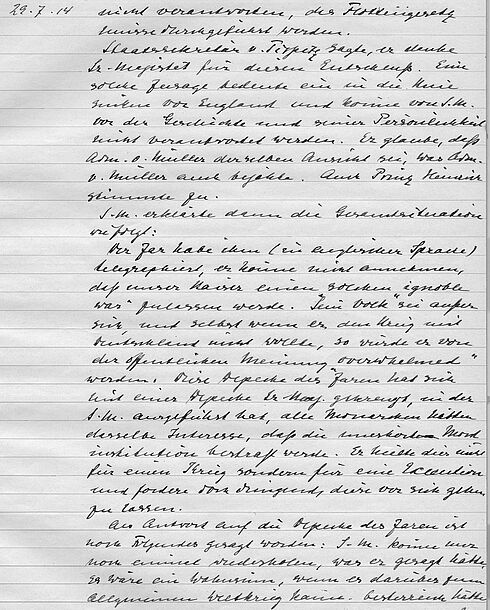 29.7.14
nicht verantworten, das Flottengesetz
müsse durchgeführt werden.
Staatssekretär v. Tirpitz sagte, er danke
Sr. Majestät für diesen Entschluß. Eine
solche Zusage bedeute ein in die Knie
sinken vor England und könne von S.M.
vor der Geschichte und seiner Persönlichkeit
nicht verantwortet werden. Er glaube, daß
Adm. v. Müller derselben Ansicht sei, was Adm.
v. Müller auch bejahte. Auch Prinz Heinrich
stimmte zu.
S.M. erklärte dann die Gesamtsituation
wie folgt:
Der Zar habe ihm (in englischer Sprache)
telegraphiert, er könne nicht annehmen,
daß unser Kaiser einen solchen "ignoble
war" zulassen werde. "Sein Volk" sei außer
sich, und selbst wenn er den Krieg mit
Deutschland nicht wollte, so würde er von
der öffentlichen Meinung "overwhelmed"
werden. Diese Depesche des Zaren hat sich
mit einer Depesche Sr. Maj. gekreuzt, in der
S.M. ausgeführt hat, alle Monarchen hätten
dasselbe Interesse, daß die unerhörte Mord
institution bestraft werde. Er hielte dies nicht
für einen Krieg sondern für eine Execution
und fordere doch dringend, diese vor sich gehen
zu lassen.
Als Antwort auf die Depesche des Zaren ist
noch Folgendes gesagt worden: S.M. könne nur
noch einmal wiederholen, was er gesagt hätte.
Es wäre ein Wahnsinn, wenn es darüber zum
allgemeinen Weltkrieg käme. Oesterreich hätte